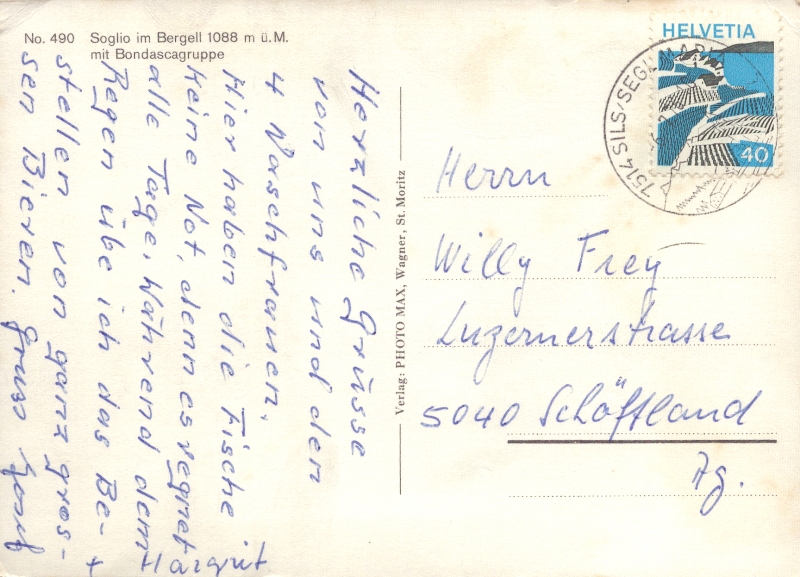 No. 490 Soglio im Bergell 1088 m ü.M.
mit Bondascagruppe
Herzliche Grüsse
von uns und den
4 Waschfrauen,
Hier haben die Fische
keine Not, denn es regnet
alle Tage, Während dem
Regen übe ich das Be-
stellen von ganz gros-
sen Bieren. Gruss Josef
+ Margrit
Verlag: PHOTO MAX, Wagner, St. Moritz
HELVETIA
40
7514 SILS/SEGL MARIA
Herrn
Willy Frey
Luzernerstrasse
5040 Schöftland
Ag.